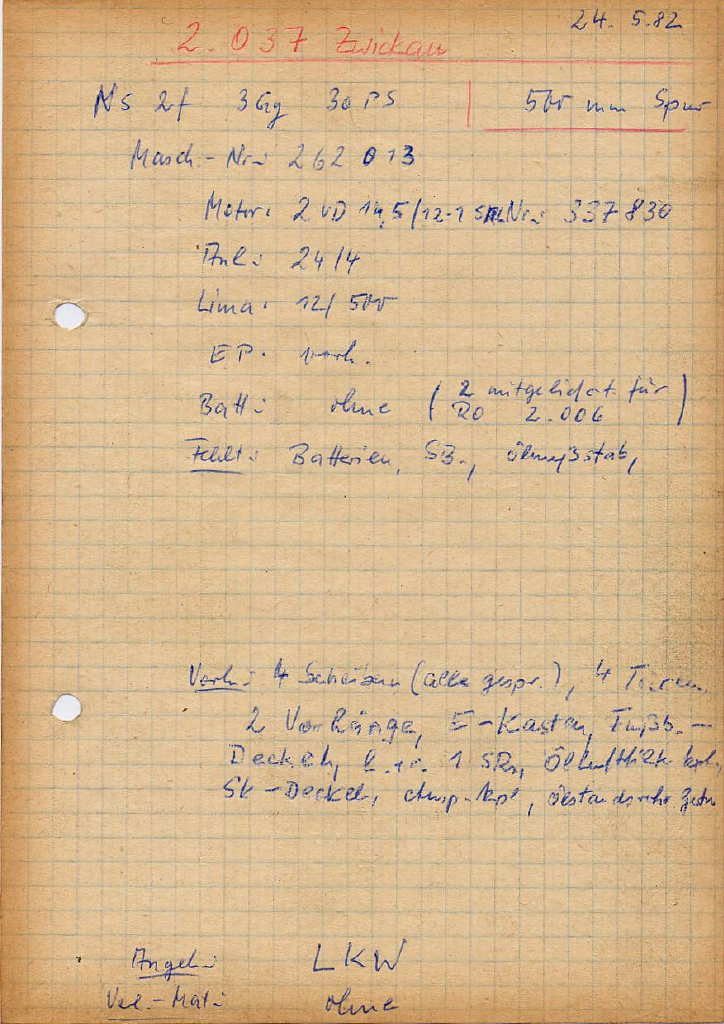 24. 5.82
2.037 Zwickau
NS 2f 3Gg 30 PS 500 mm Spur
Masch.-Nr.: 262 013
Motor: 2 VD 14,5/12-1 SRL Nr.: 337 830
Anl.: 24/4
Lima: 12/500
EP: vorh.
Batt.: ohne (2 mitgeliefert für
RO 2.006)
Fehlt: Batterien, SB., Ölmeßstab,
Vorh.: 4 Scheiben (alle gespr.), 4 Türen
2 Vorhänge, E-Kasten, Fußb.-
Deckel, h. + v. 1 SRs, Ölluftfilter kpl.
SK-Deckel, kpl, Ölstandsrohr
Angel.: LKW
Vel.-Mat.: ohne